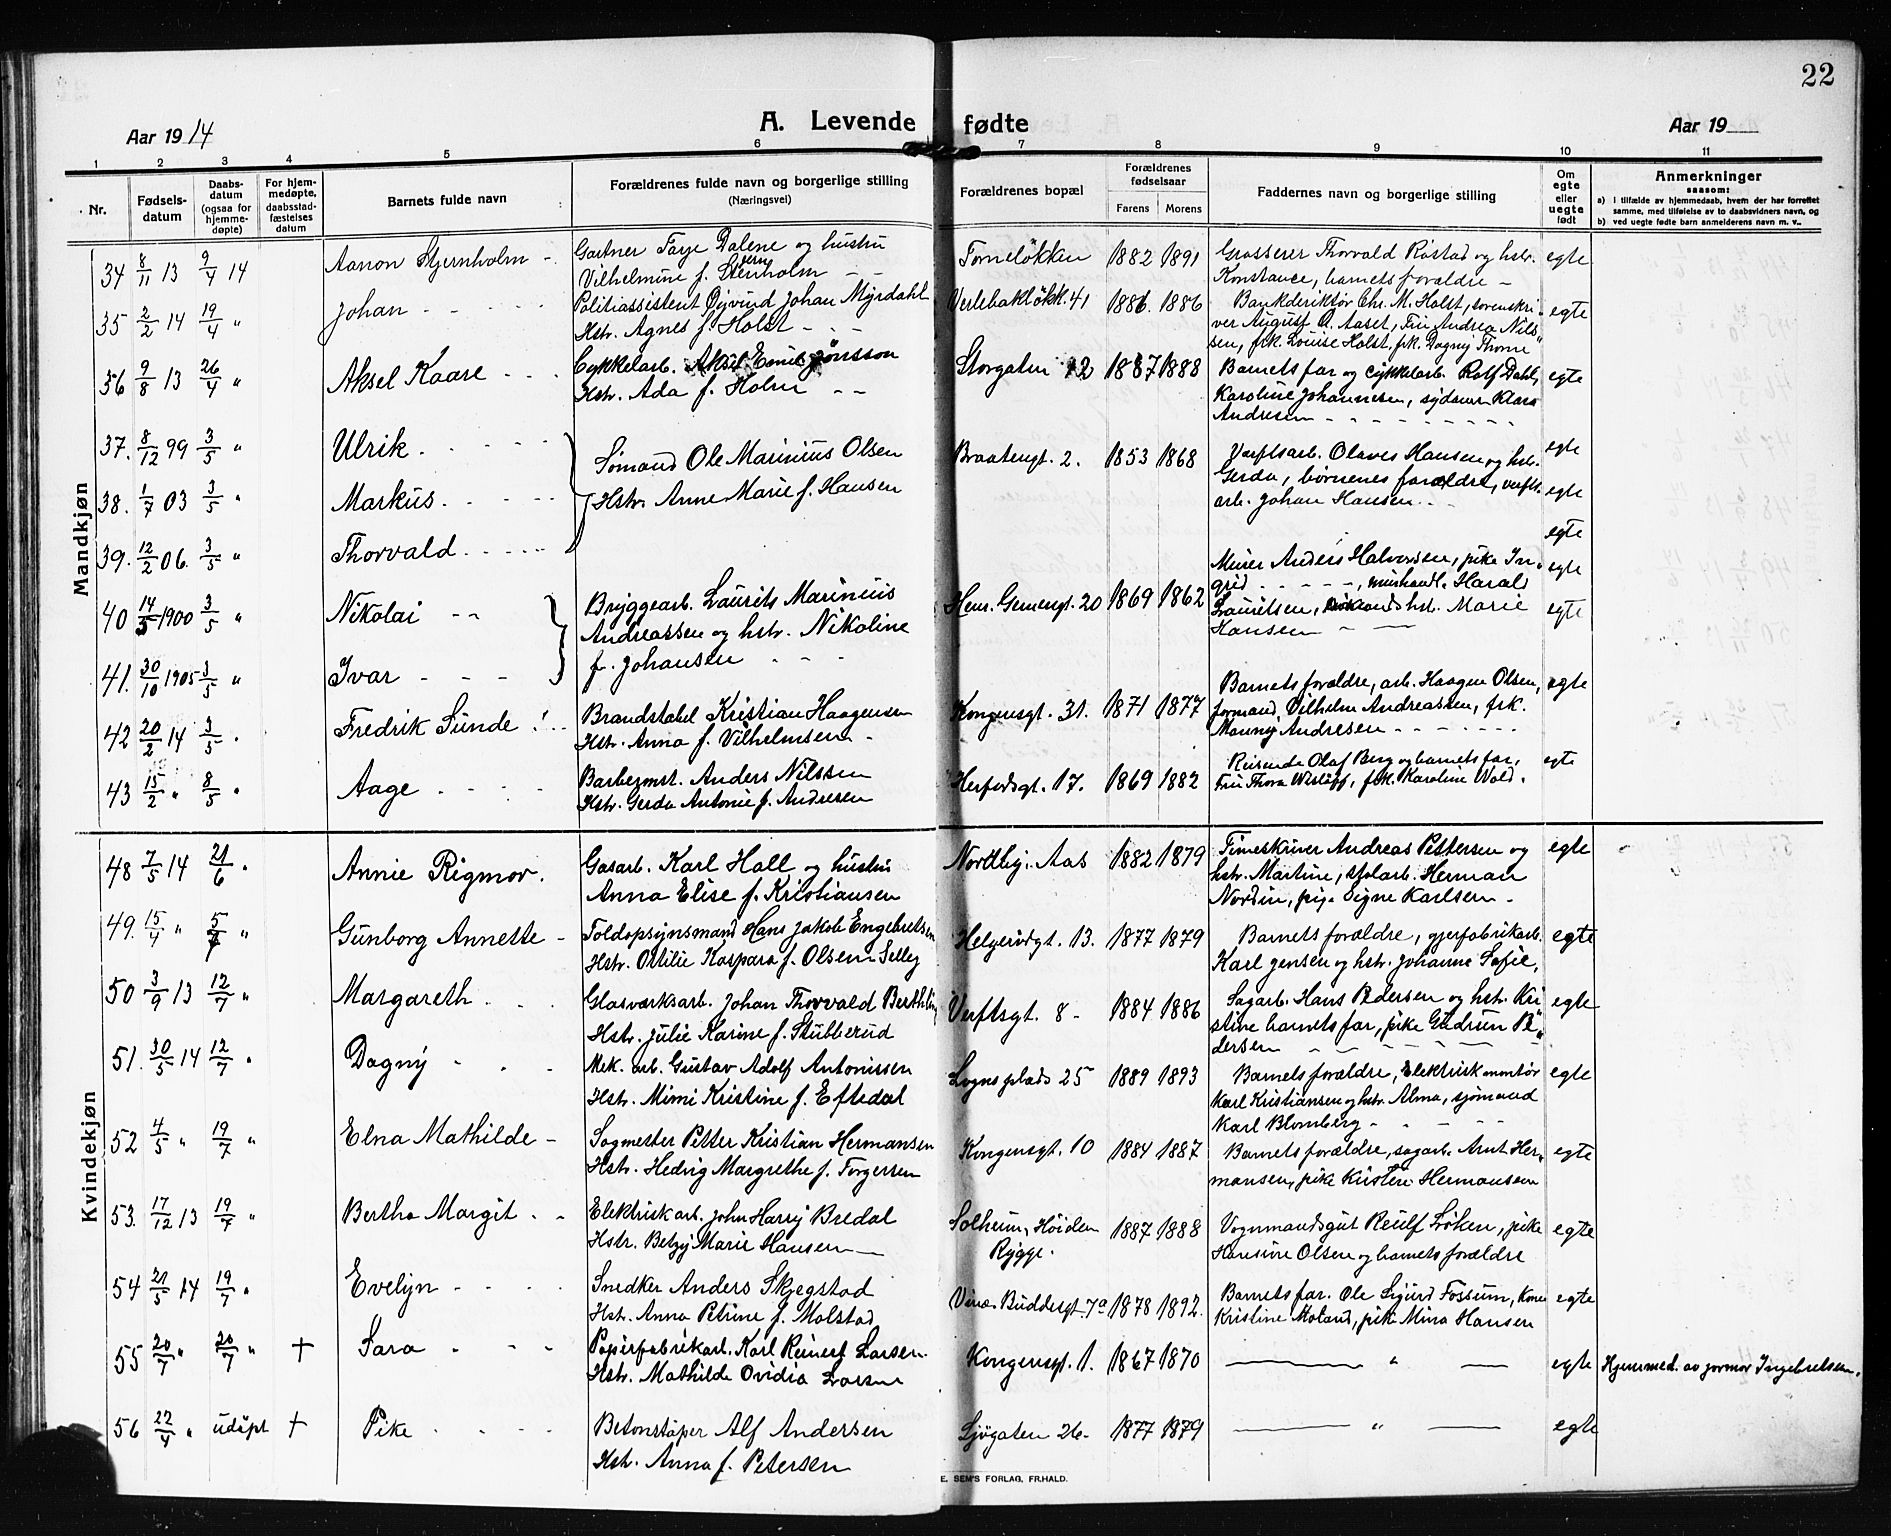 22
Aar 1914
A. Levende fødte
Aar 19
1 2 3 4 5 6 7 8 9 10 11
Nr.
Fødsels-
datum
Daabs-
datum
(ogsaa for
hjemme-
døpte)
For hjem-
medøpte,
daabsstad-
fæstelses
datum
Barnets fulde navn
Forældrenes fulde navn og borgerlige stilling
(Næringsvei)
Forældrenes bopæl
Forældrenes
fødselsaar
Farens Morens
Faddernes navn og borgerlige stilling
Om
egte
eller
uegte
født
Anmerkninger
saasom:
a) i tilfælde av hjemmedaab, hvem der har forrettet
samme, med tilføielse av to daabsvidners navn, og
b) ved uegte fødte barn anmelderens navn m. v..
Mandkjøn
34 8/11 13 9/4 14 Aanon Stjernholm -
Gartner Farje Dalene og hustru
Vilhelmine f. Stjernholm - -
Torneløkken 1882 1891
Grosserer Thorvald Røstad og hstr.
Konstance, barnets forældre -
egte
35 2/2 14 19/4 " Johan - - - -
Politiassistent Øyvind Johan Myrdahl
Hstr. Agnes f. Holst - - -
Verlebakløkk. 41 1886. 1886
Bankdirektør Chr. M. Holst, sorenskri-
ver August O. Aaset, Fru Andrea Nils-
sen, frk. Louise Holst, frk. Dagny Thorne
egte
36 9/8 13 26/4 " Aksel Kaare - - -
Cykkelarb. Aksel Emil Jönsson
Hstr. Ada f. Holm - -
Storgaten 12 1887 1888
Barnets far og cykkelarb. Rolf Dahl,
Karoline Johannesen, sydame Klara
Andresen - - - - - - - -
egte
37. 8/12 99 3/5 " Ulrik. - - - -
38. 1/7 03 3/5 " Markus. - - - -
39. 12/2 06. 3/5 " Thorvald - - - - -
Sømand Ole Marinius Olsen
Hstr. Anne Marie f. Hansen
Braatengt. 2. 1853 1868
Verftsarb. Olaves Hansen og hstr.
Gerda, børnenes forældre, verfts-
arb. Johan Hansen. - -
egte
egte
egte
40 14/5 1900 3/5 " Nikolai - -
41. 30/10 1905 3/5 " Ivar - - -
Bryggearb. Laurits Marinius
Andreassen og hstr. Nikoline
f. Johansen - - -
Hens. Gernergt. 20 1869 1862
Murer Anders Halvorsen, pike In-
grid - - - - -, murhandl. Harald
Lauritsen, hstr. Marie
Hansen - -
egte
egte
egte
42 20/2 14 3/5 " Fredrik Sunde ! - -
Brandstabel Kristian Haagensen
Hstr. Anna f. Vilhelmsen -
Kongensgt. 31. 1871 1877
Barnets forældre, arb. Haagen Olsen,
formand Vilhelm Andreassen, frk.
Mauny Andresen - - - - - -
43 15/2 " 8/5 " Aage - - - -
Barbermst. Anders Nilssen
Hstr. Gerda Antonie f. Andresen
Herfødsgt. 17. 1869 1882
Reisende Olaf Berg og barnets far,
Fru Thora Wisløff, frk. Karoline Wold.
egte
Kvindekjøn
48 7/5 14 21/6 " Annie Rigmor.
Gasarb. Karl Hall og hustru
Anna Elise f. Kristiansen
Nordby. Aas 1882 1879
Timeskriver Andreas Pettersen og
hstr. Martine, stolarb. Herman
Nordin, pige Signe Karlsen -
egte
49. 15/4 " 5/7 " Gunborg Annette -
Toldopsynsmand Hans Jakob Engebretsen
Hstr. Ottilie Kaspara f. Olsen-Selley
Helgerødgt. 13. 1877 1879
Barnets forældre, gjerfabrikarb.
Karl Jensen og hstr. Johanne Sofie,
egte
50 3/9 13 12/7 " Margareth - -
Glasværksarb. Johan Thorvald Berthling
Hstr. Julie Karine f. Stubberud
Verftsgt. 8 - 1884 1886
Sagarb. Hans Pedersen og hstr. Kri-
stine barnets far, pike Gudrun Pe-
dersen - - - - - - -
egte
51. 30/5 14 12/7 " Dagny - - -
Mek. arb. Gustav Adolf Antonissen
Hstr. Mimi Kristine f. Eftedal
Logns plads 25 1889 1893
Barnets forældre, Elektrisk montør
Karl Kristiansen og hstr. Alma, sjømand
Karl Blomberg - - - - -
egte
52 4/5 " 19/7 " Elna Mathilde -
Sagmester Petter Kristian Hermansen
Hstr. Hedvig Margrethe f. Torgersen
Kongensgt. 10 1884 1887
Barnets forældre, sagarb. Arnt Her-
mansen, pike Kristen Hermansen
egte
53. 17/12 13 19/7 " Bertha Margit. - -
Elektrisk arb. John Harry Bredal
Hstr. Betzy Marie Hansen -
Solheim, Høiden
Rygge. 1887 1888
Vognmandsgut Reulf Løken, pike
Hansine Olsen og barnets forældre
egte
54 21/5 14 19/7 " Evelyn - - - -
Snedker Anders Skjegstad
Hstr. Anna Petrine f. Molstad
Vinc. Buddesgt. 7a 1878 1892.
Barnets far. Ole Sigurd Fossum, Kone
Kristine Moland, pike Mina Hansen
egte
55 20/7 " 20/7 " + Sara - - -
Papirfabrikarb. Karl Reinert Larsen
Hstr. Mathilde Ovidia Larsen
Kongensgt. 1. 1867 1870
— " —
egte Hjemmed. av jormor Ingebretsen.
56 22/4 " udøpt + Pike - - - -
Betonstøper Alf Andersen
Hstr. Anna f. Petersen
Sjøgaten 26- 1877 1879
— " —
egte
E. SEM'S FORLAG, FR.HALD.